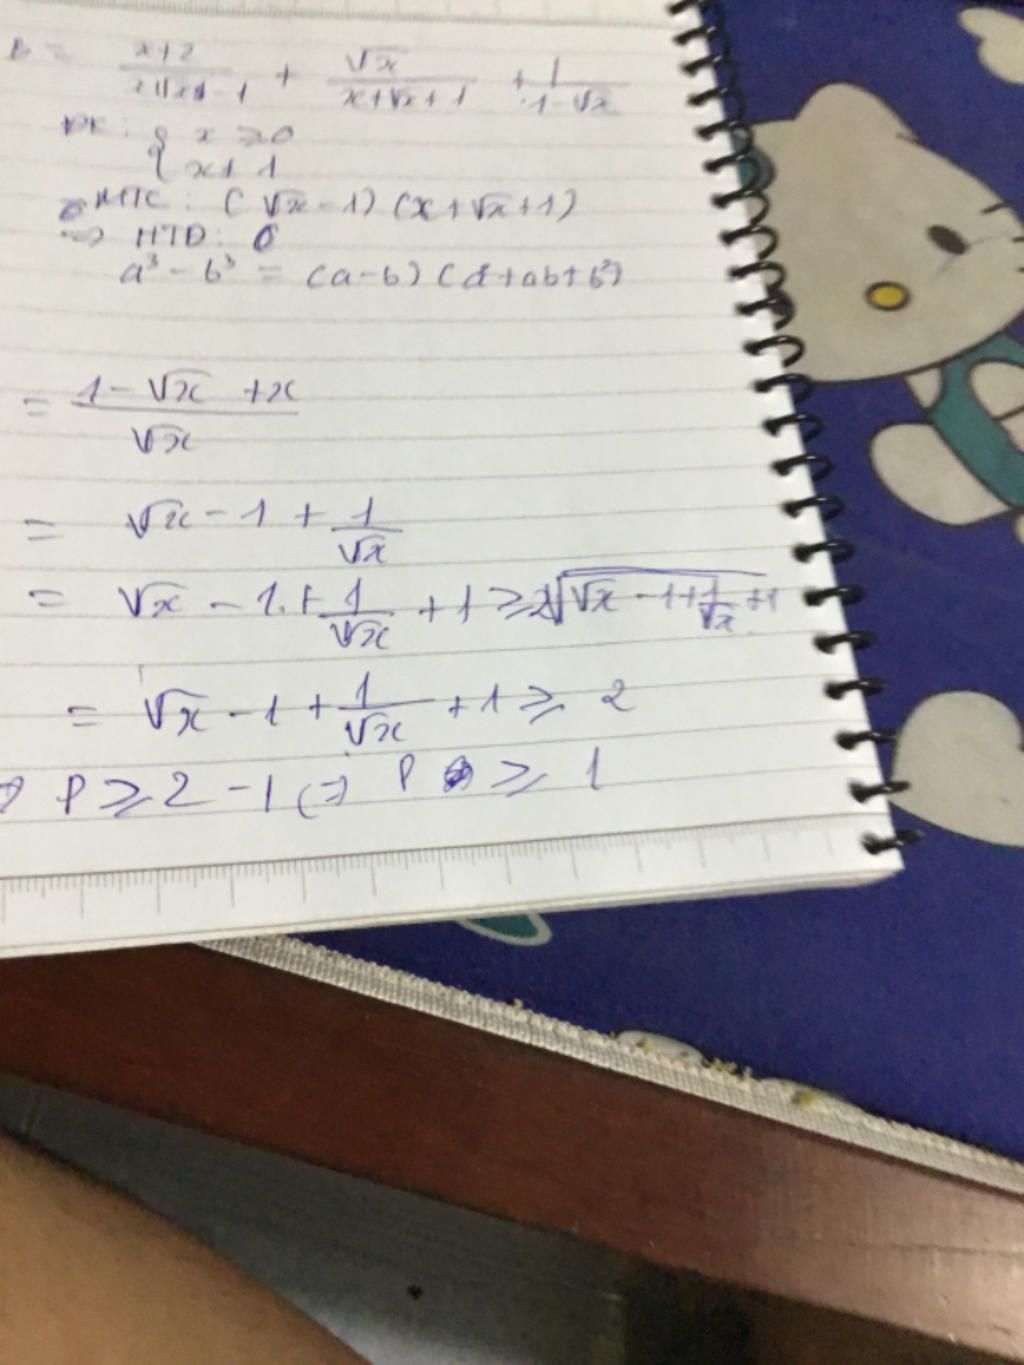 B = x+2 / x√x - 1 + √x / x+√x+1 + 1 / 1-√x
ĐK: { x ≥ 0
{ x ≠ 1
MTC: (√x - 1) (x+√x+1)
=> HTD:
a³ - b³ = (a-b) (a²+ab+b²)
= 1 - √x + x / √x
= √x - 1 + 1/√x
= √x - 1 + 1/√x + 1 ≥ 2√√x - 1 + 1/√x + 1
= √x - 1 + 1/√x + 1 ≥ 2
=> P ≥ 2 - 1 (=> P ≥ 1